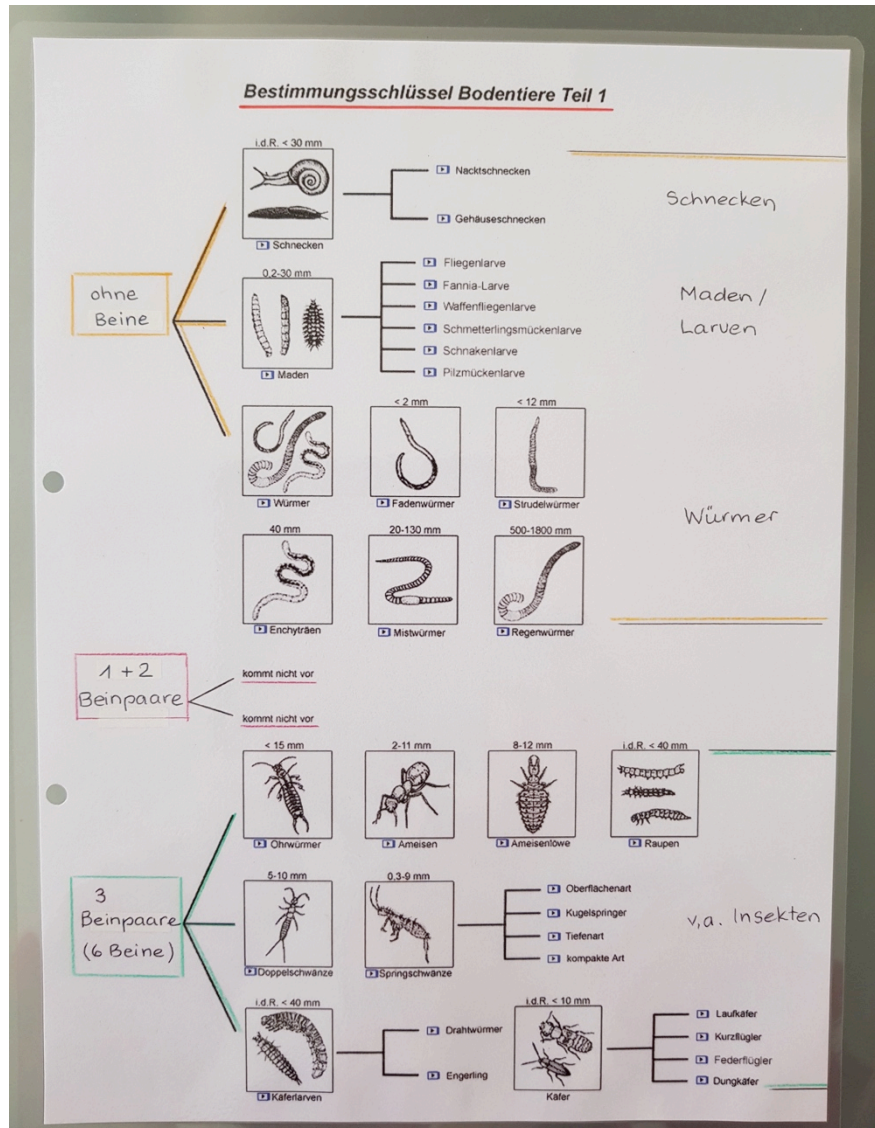 Bestimmungsschlüssel Bodentiere Teil 1
ohne
Beine
i.d.R. < 30 mm
Schnecken
Nacktschnecken
Gehäuseschnecken
Schnecken
0,2-30 mm
Maden
Fliegenlarve
Fannia-Larve
Waffenfliegenlarve
Schmetterlingsmückenlarve
Schnakenlarve
Pilzmückenlarve
Maden /
Larven
Würmer
< 2 mm
Fadenwürmer
< 12 mm
Strudelwürmer
40 mm
Enchyträen
20-130 mm
Mistwürmer
500-1800 mm
Regenwürmer
Würmer
1 + 2
Beinpaare
kommt nicht vor
kommt nicht vor
3
Beinpaare
(6 Beine)
< 15 mm
Ohrwürmer
2-11 mm
Ameisen
8-12 mm
Ameisenlöwe
i.d.R. < 40 mm
Raupen
5-10 mm
Doppelschwänze
0,3-9 mm
Springschwänze
Oberflächenart
Kugelspringer
Tiefenart
kompakte Art
v,a. Insekten
i.d.R. < 40 mm
Käferlarven
Drahtwürmer
Engerling
i.d.R. < 10 mm
Käfer
Laufkäfer
Kurzflügler
Federflügler
Dungkäfer